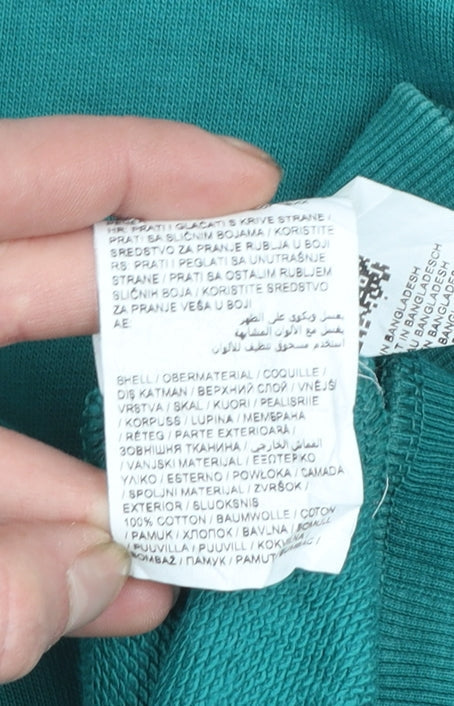 HR: PRATI I GLAČATI S KRIVE STRANE /
PRATI SA SLIČNIM BOJAMA / KORISTITE
SREDSTVO ZA PRANJE RUBLJA U BOJI
RS: PRATI I PEGLATI SA UNUTRAŠNJE
STRANE / PRATI SA OSTALIM RUBLJEM
SLIČNIH BOJA / KORISTITE SREDSTVO
ZA PRANJE VEŠA U BOJI
AE:
يغسل ويكوى على الظهر
يغسل مع الألوان المشابهة
استخدم مسحوق تنظيف للألوان
SHELL / OBERMATERIAL / COQUILLE /
DIŞ KATMAN / ВЕРХНИЙ СЛОЙ / VNĚJŠÍ
VRSTVA / SKAL / KUORI / PEALISRIIE
/ KORPUSS / LUPINA / МЕМБРАНА
/ RÉTEG / PARTE EXTERIOARĂ /
ЗОВНІШНЯ ТКАНИНА / القماش الخارجي
/ VANJSKI MATERIJAL / ΕΞΩΤΕΡΙΚΟ
ΥΛΙΚΟ / ESTERNO / POWŁOKA / CAMADA
/ SPOLJNI MATERIJAL / ZVRŠOK /
EXTERIOR / SLUOKSNIS
100% COTTON / BAUMWOLLE / COTON
/ PAMUK / ХЛОПОК / BAVLNA / BOMULL
/ PUUVILLA / PUUVILL / KOKVILNA
BOMBAŽ / ПАМУК / PAMUT / BUMBAC /
IN BANGLADESH
IN BANGLADESCH
AU BANGLADESH
BANGLADEŞ